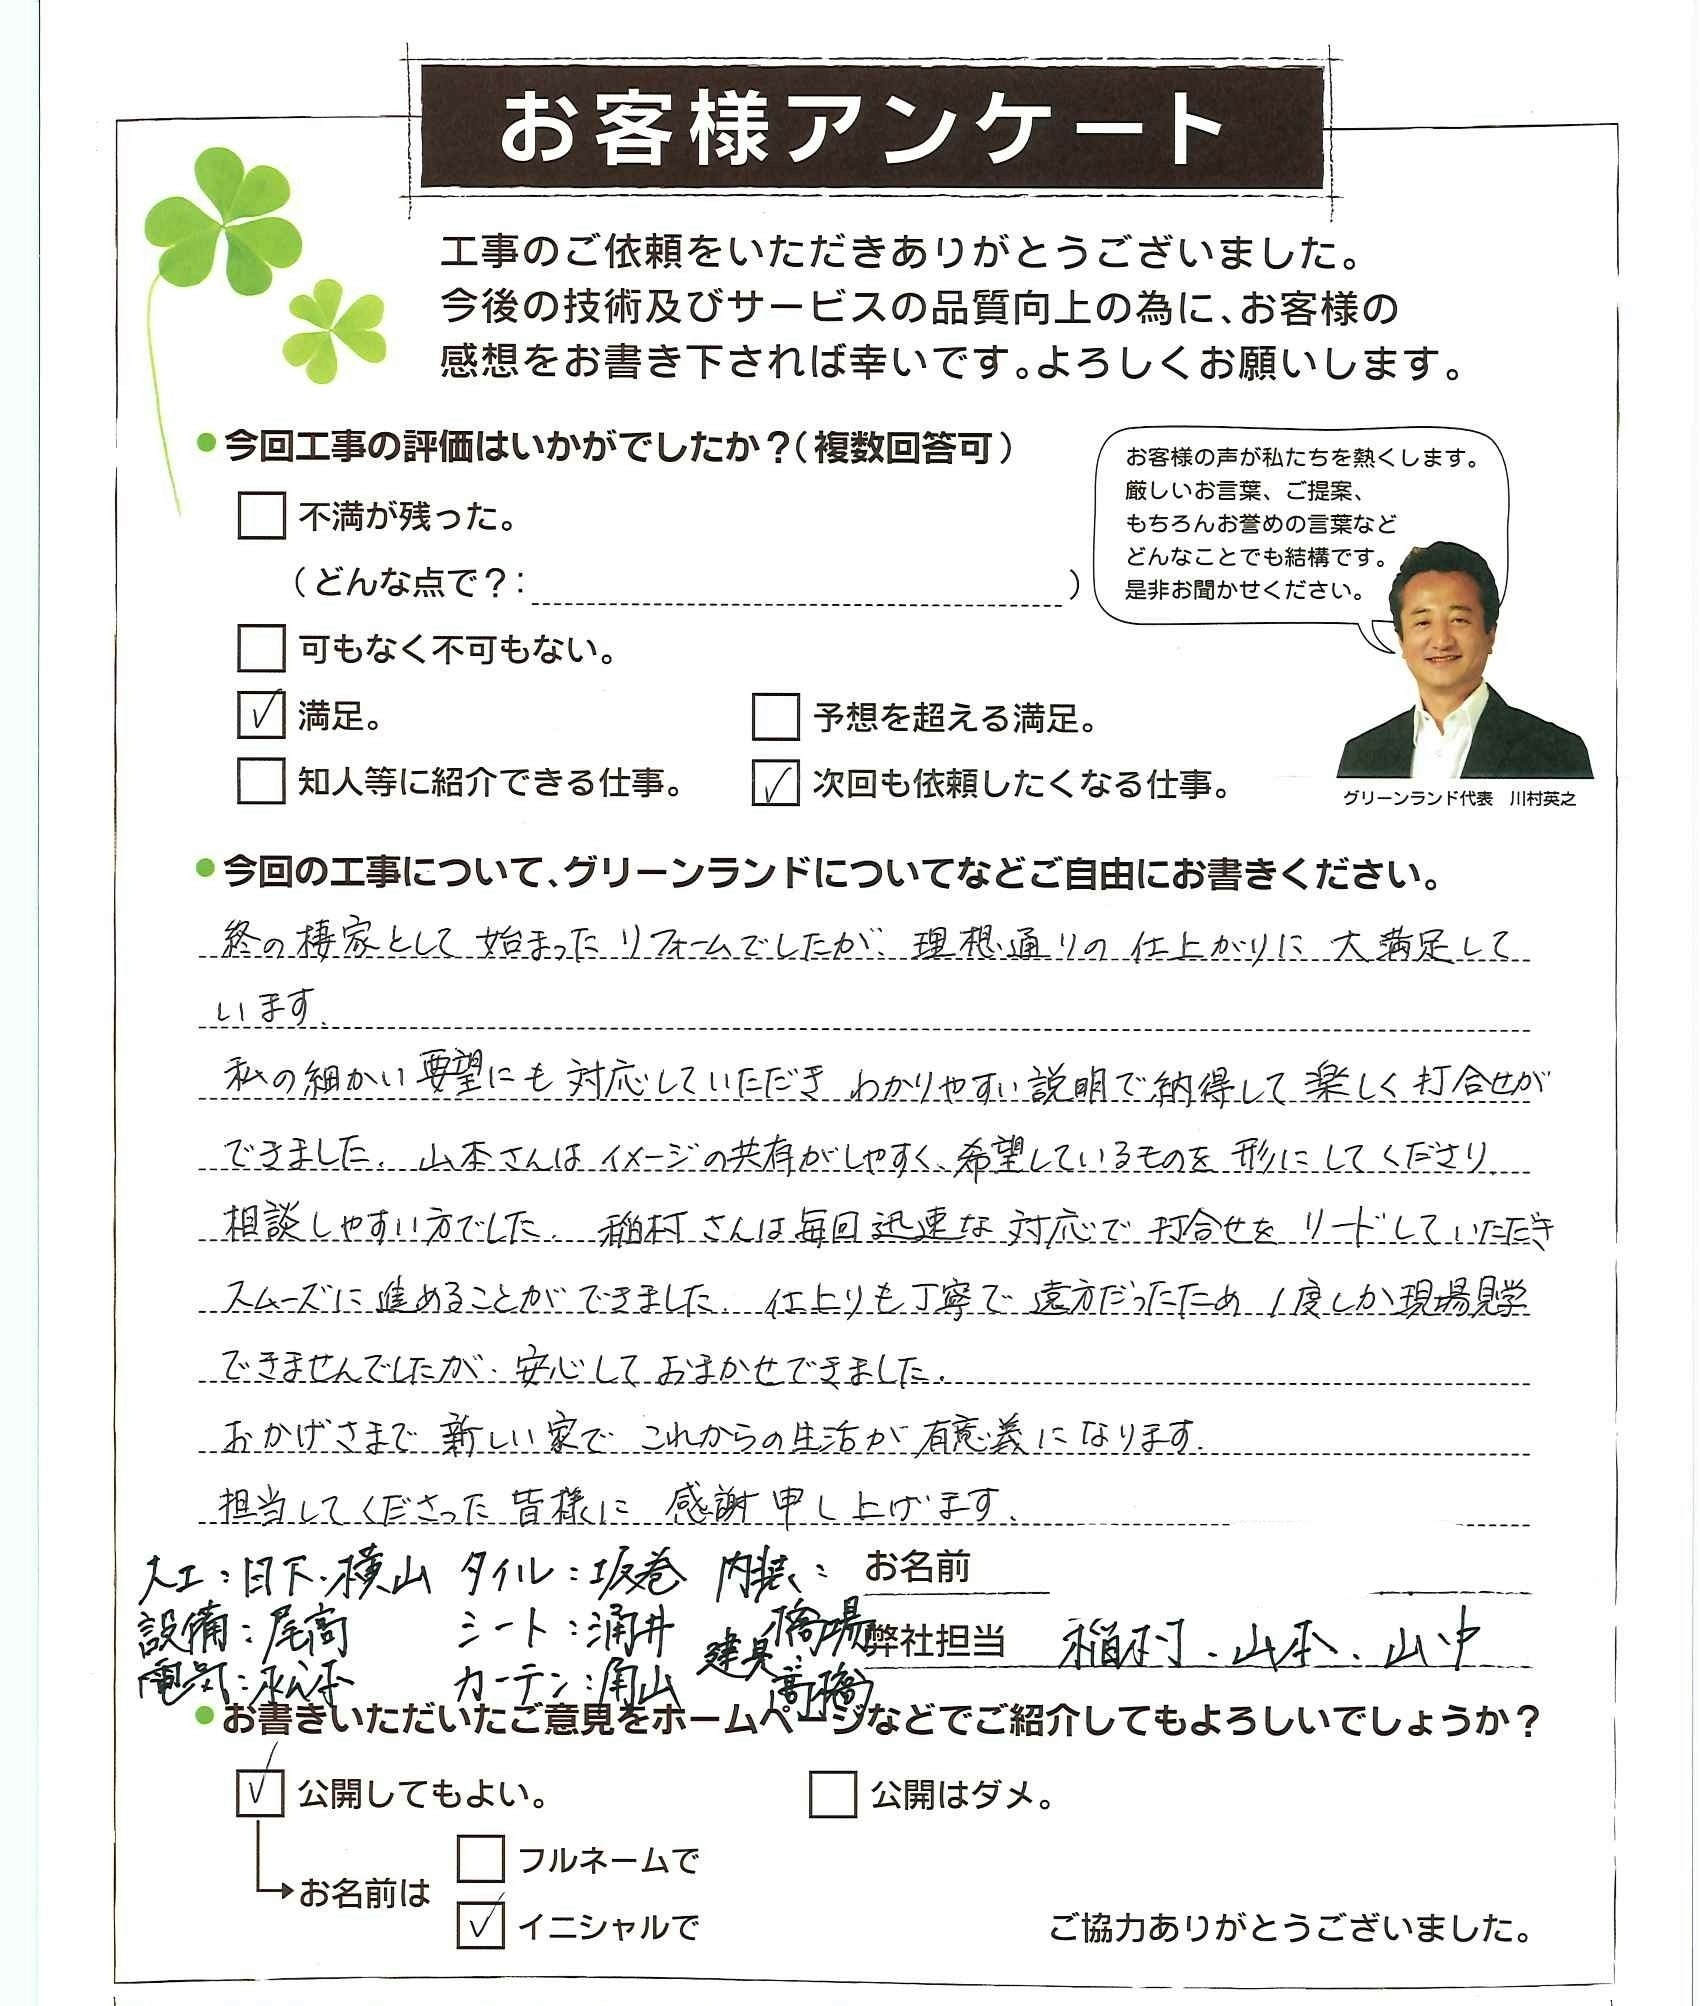 お客様アンケート
工事のご依頼をいただきありがとうございました。
今後の技術及びサービスの品質向上の為に、お客様の
感想をお書き下されば幸いです。よろしくお願いします。
●今回工事の評価はいかがでしたか？（複数回答可）
お客様の声が私たちを熱くします。
厳しいお言葉、ご提案、
もちろんお誉めの言葉など
どんなことでも結構です。
是非お聞かせください。
不満が残った。
（どんな点で？：　）
可もなく不可もない。
満足。
予想を超える満足。
知人等に紹介できる仕事。
次回も依頼したくなる仕事。
グリーンランド代表　川村英之
●今回の工事について、グリーンランドについてなどご自由にお書きください。
終の棲家として始まったリフォームでしたが、理想通りの仕上がりに大満足して
います。
私の細かい要望にも対応していただきわかりやすい説明で納得して楽しく打合せが
できました。山本さんはイメージの共存がしやすく、希望しているものを形にしてくださり、
相談しやすい方でした。稲村さんは毎回迅速な対応で打合せをリードしていただき
スムーズに進めることができました。仕上りも丁寧で遠方だったため1度しか現場見学
できませんでしたが、安心しておまかせできました。
おかげさまで新しい家でこれからの生活が有意義になります。
担当してくださった皆様に感謝申し上げます。
大工：日下・横山　タイル：坂巻　内装：橋場
設備：尾高　シート：涌井　建具　高橋
電気：松本　カーテン：角山
お名前
弊社担当　稲村、山本、山中
●お書きいただいたご意見をホームページなどでご紹介してもよろしいでしょうか？
公開してもよい。
公開はダメ。
お名前は
フルネームで
イニシャルで
ご協力ありがとうございました。